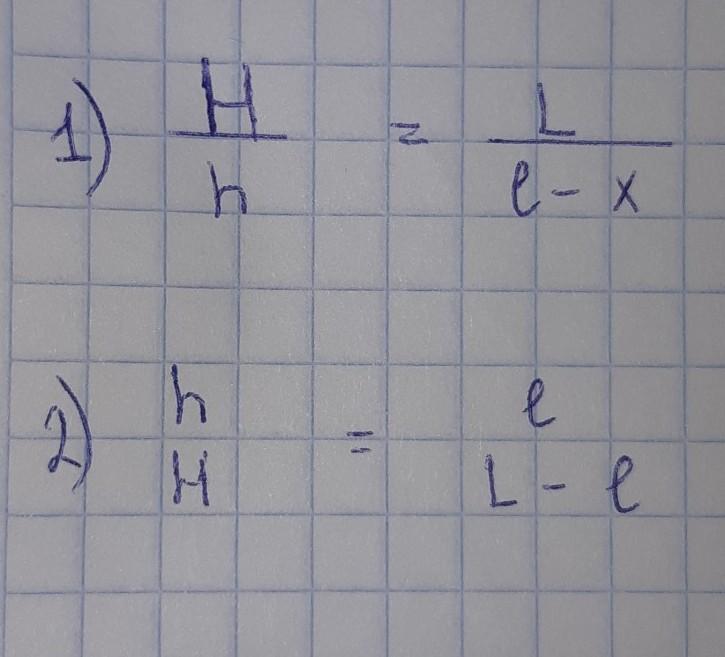 1) H/h = L/(ℓ - x)
2) h
H = ℓ
L - ℓ